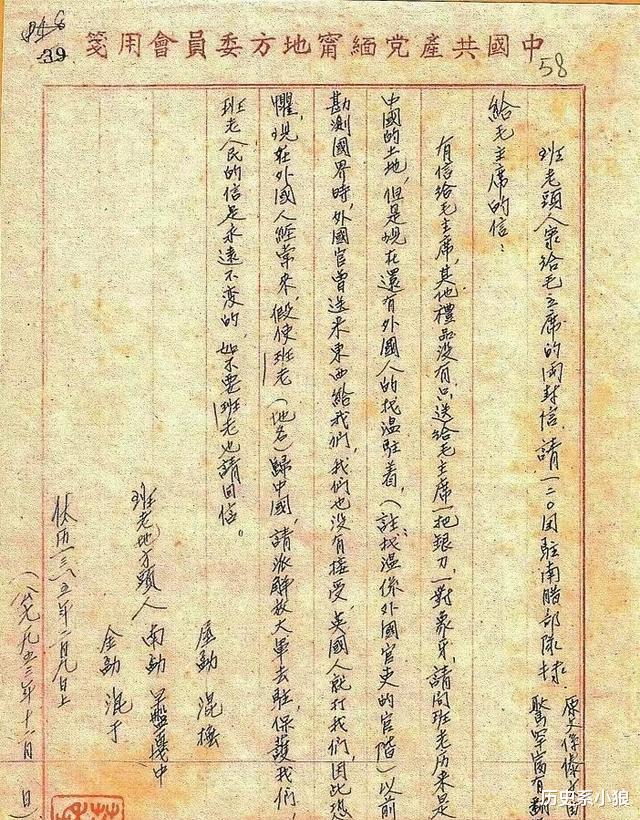 中國共產党緬甯地方委員會用箋
39
58
班老頭人家給毛主席的兩封信,請一二〇团駐南腊部隊
原文係傣文由
給毛主席的信:
有信給毛主席,其他禮品沒有只送給毛主席一把銀刀,一對象牙,請問班老历来是
中國的土地,但是現在還有外國人的找温駐着,(註:找温係外國官吏的官階)以前
勘測國界時,外國官曾送來東西給我們,我們也沒有接受,英國人就打我們,因此恐
懼,現在外國人經常來,假使班老(地名)歸中國,請派解放大軍去駐,保護我們
班老人民的信是永遠不変的,如不要班老也請回信。
屋勐
班老地方頭人 南勐
金勐 混
一三一五年二月九日上
(公元一九五三年十一月 日)
历史系小狼